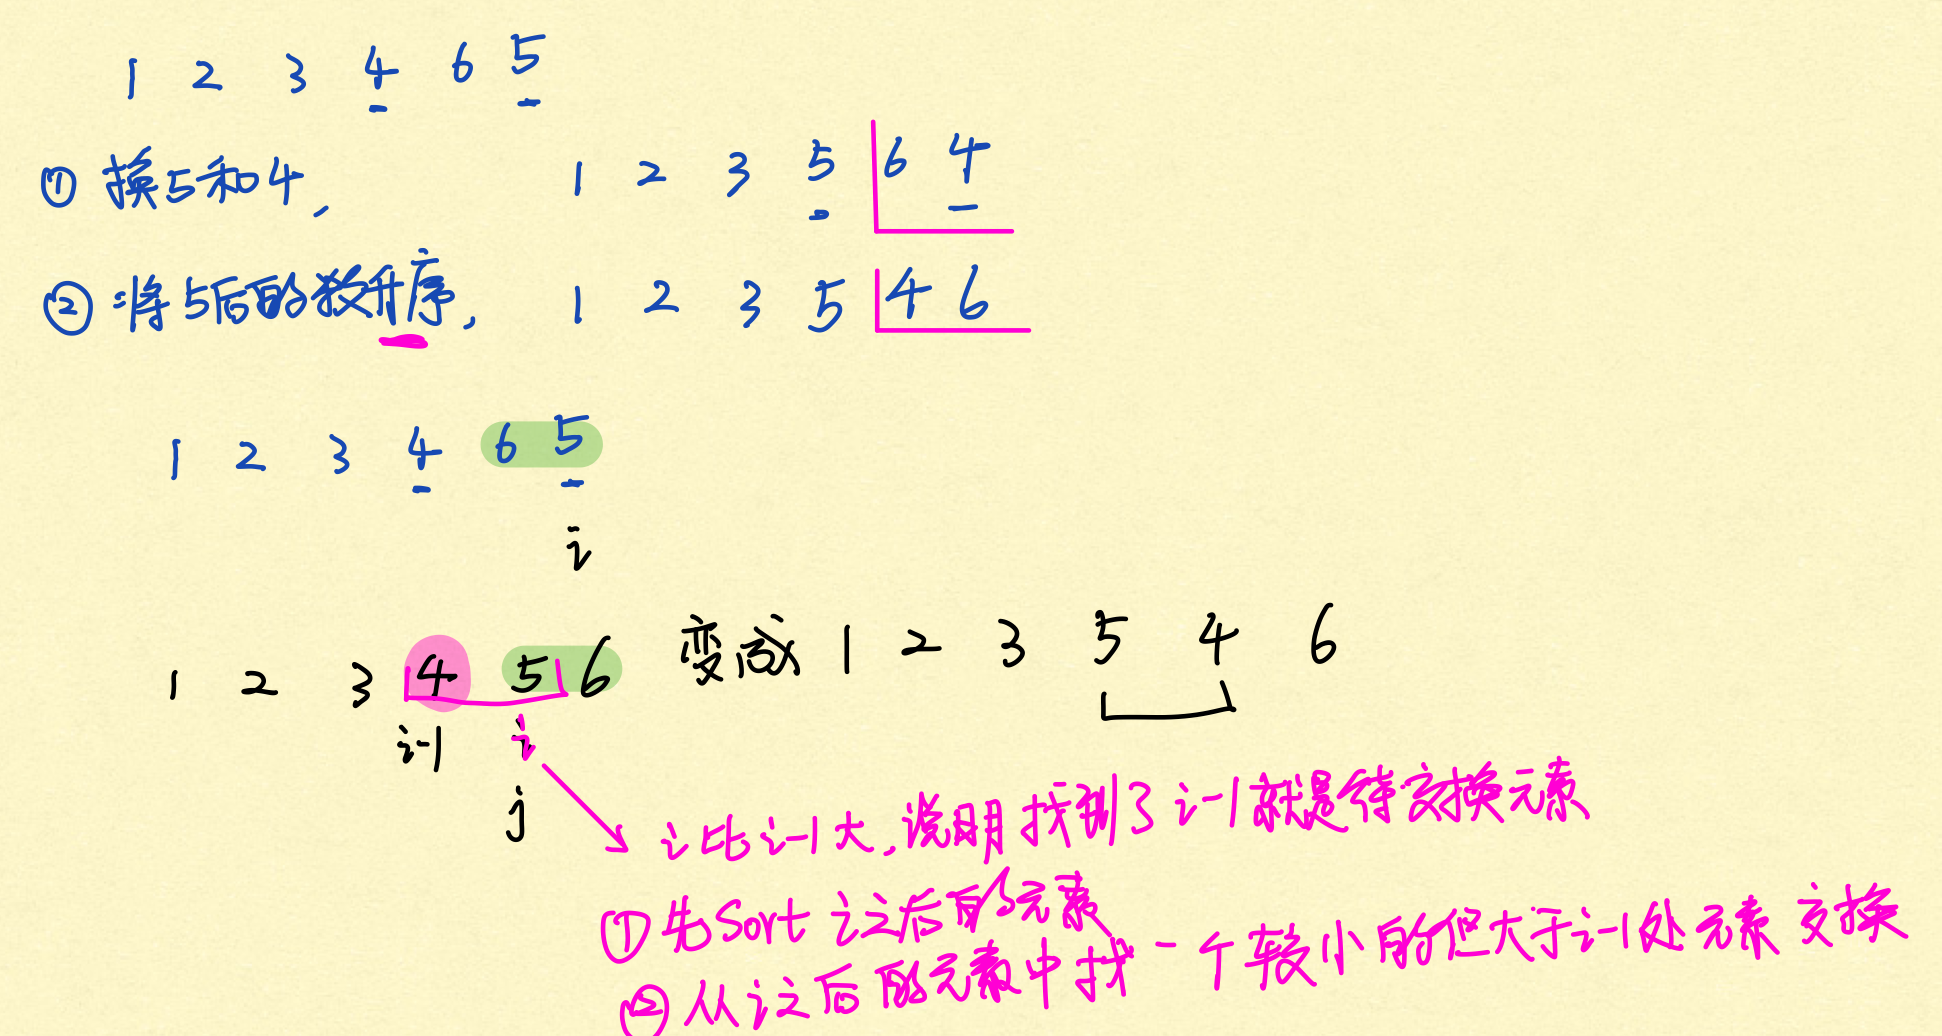 1 2 3 4 6 5
① 换5和4, 1 2 3 5 6 4
② 将5后的数升序, 1 2 3 5 4 6
1 2 3 4 6 5
i
1 2 3 4 5 6 变成 1 2 3 5 4 6
i-1 i
j
i比i-1大,说明找到了i-1就是待交换元素
①先Sort i之后的元素
②从i之后的元素中找一个较小的但大于i-1处元素交换